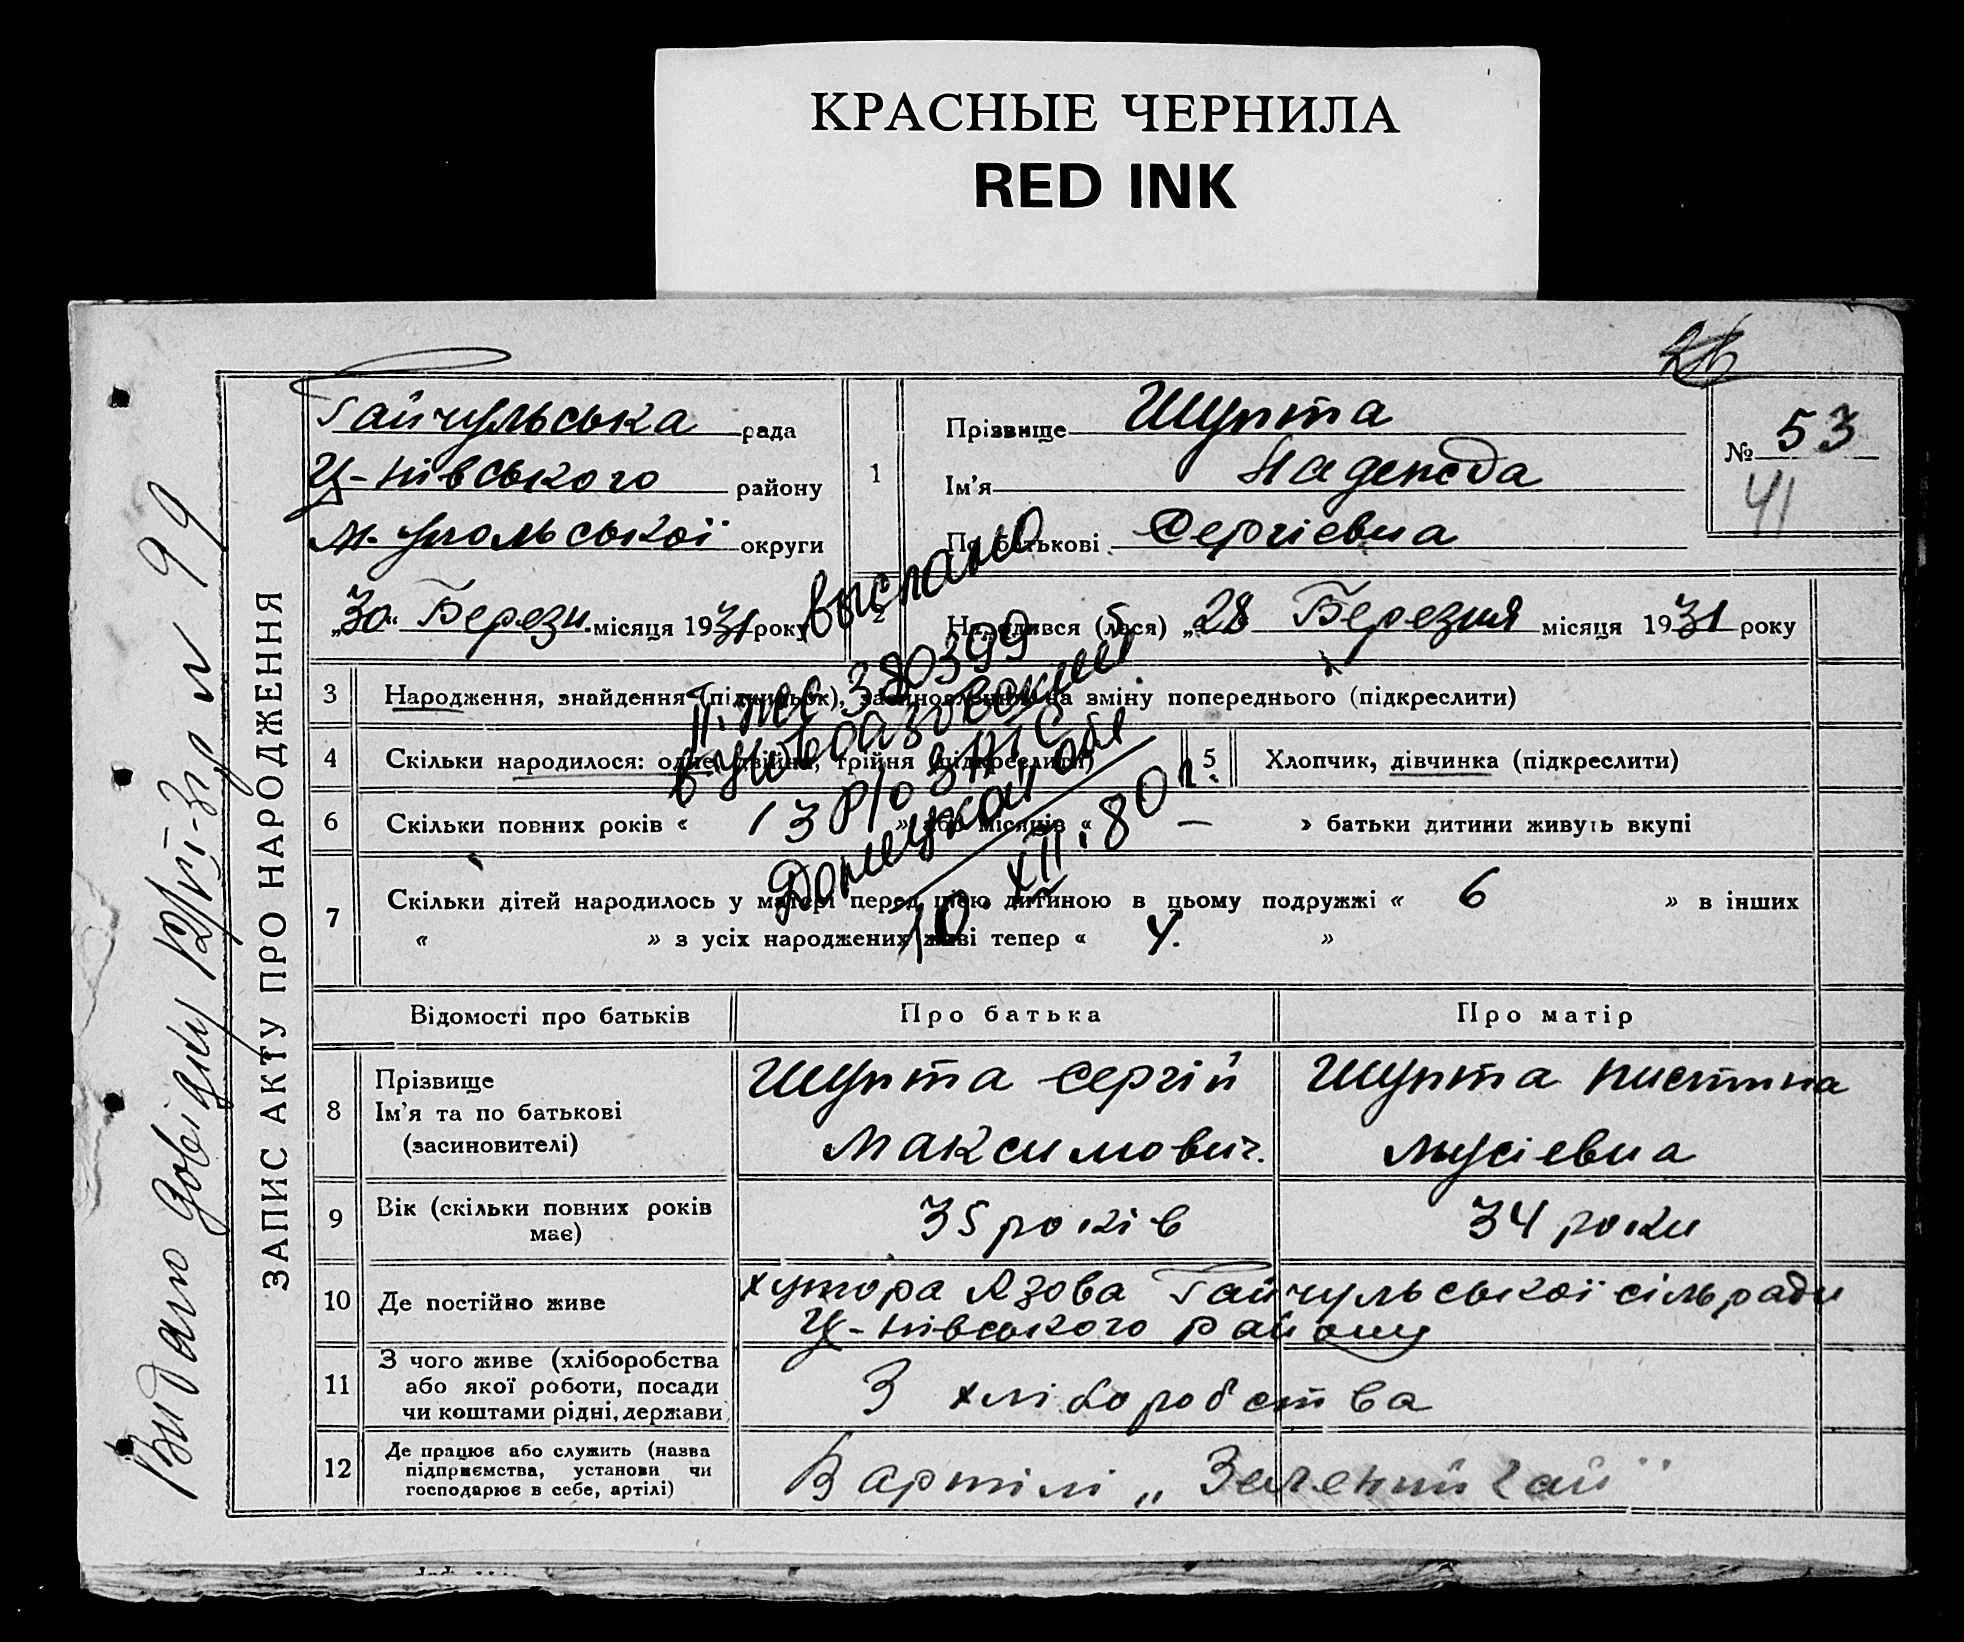 КРАСНЫЕ ЧЕРНИЛА
RED INK
26
ЗАПИС АКТУ ПРО НАРОДЖЕННЯ
Видано довідку 12/VI-31р № 99
Гайчульська рада
Ц-нівського району
М-упольської округи
„30“ Березн. місяця 1931 року
1
Прізвище Шупта
Ім'я Надежда
По батькові Сергієвна
№ 53
41
2
Народився (лася) „28 Березня місяця 1931 року
выслано
II. 380399
в
ЗАГС
Донецкой обл
10. XII. 80 г.
3 Народження, знайдення (підкидьок), засиновлення на зміну попереднього (підкреслити)
4 Скільки народилося: одне, двійня, трійня (підкреслити)
5 Хлопчик, дівчинка (підкреслити)
6 Скільки повних років « 13 » або місяців « — » батьки дитини живуть вкупі
7 Скільки дітей народилось у матері перед цією дитиною в цьому подружжі « 6 » в інших
« » з усіх народжених живі тепер « 4. »
Відомості про батьків Про батька Про матір
8 Прізвище
Ім'я та по батькові
(засиновителі)
Шупта Сергій
Максимович.
Шупта Пистина
Мусієвна
9 Вік (скільки повних років
має)
35 років
34 роки
10 Де постійно живе
хутора Азова Гайчульської сільради
Ц-нівського району
11 З чого живе (хліборобства
або якої роботи, посади
чи коштами рідні, держави
З хліборобства
12 Де працює або служить (назва
підприємства, установи чи
господарює в себе, артілі)
В артілі „Зелений гай"